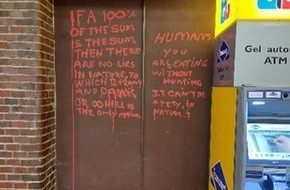 IF A 100%
OF THE SUM
IS THE SUM,
THEN THERE
ARE NO LIES
IN NATURE, TO
WHICH
AND
OR HELL IS
THE ONLY
HUMANS
YOU
ARE EATING
WITHOUT
HUNTING
IT CAN'T BE
A PETY, IN
NATURE
Gel autom
ATM